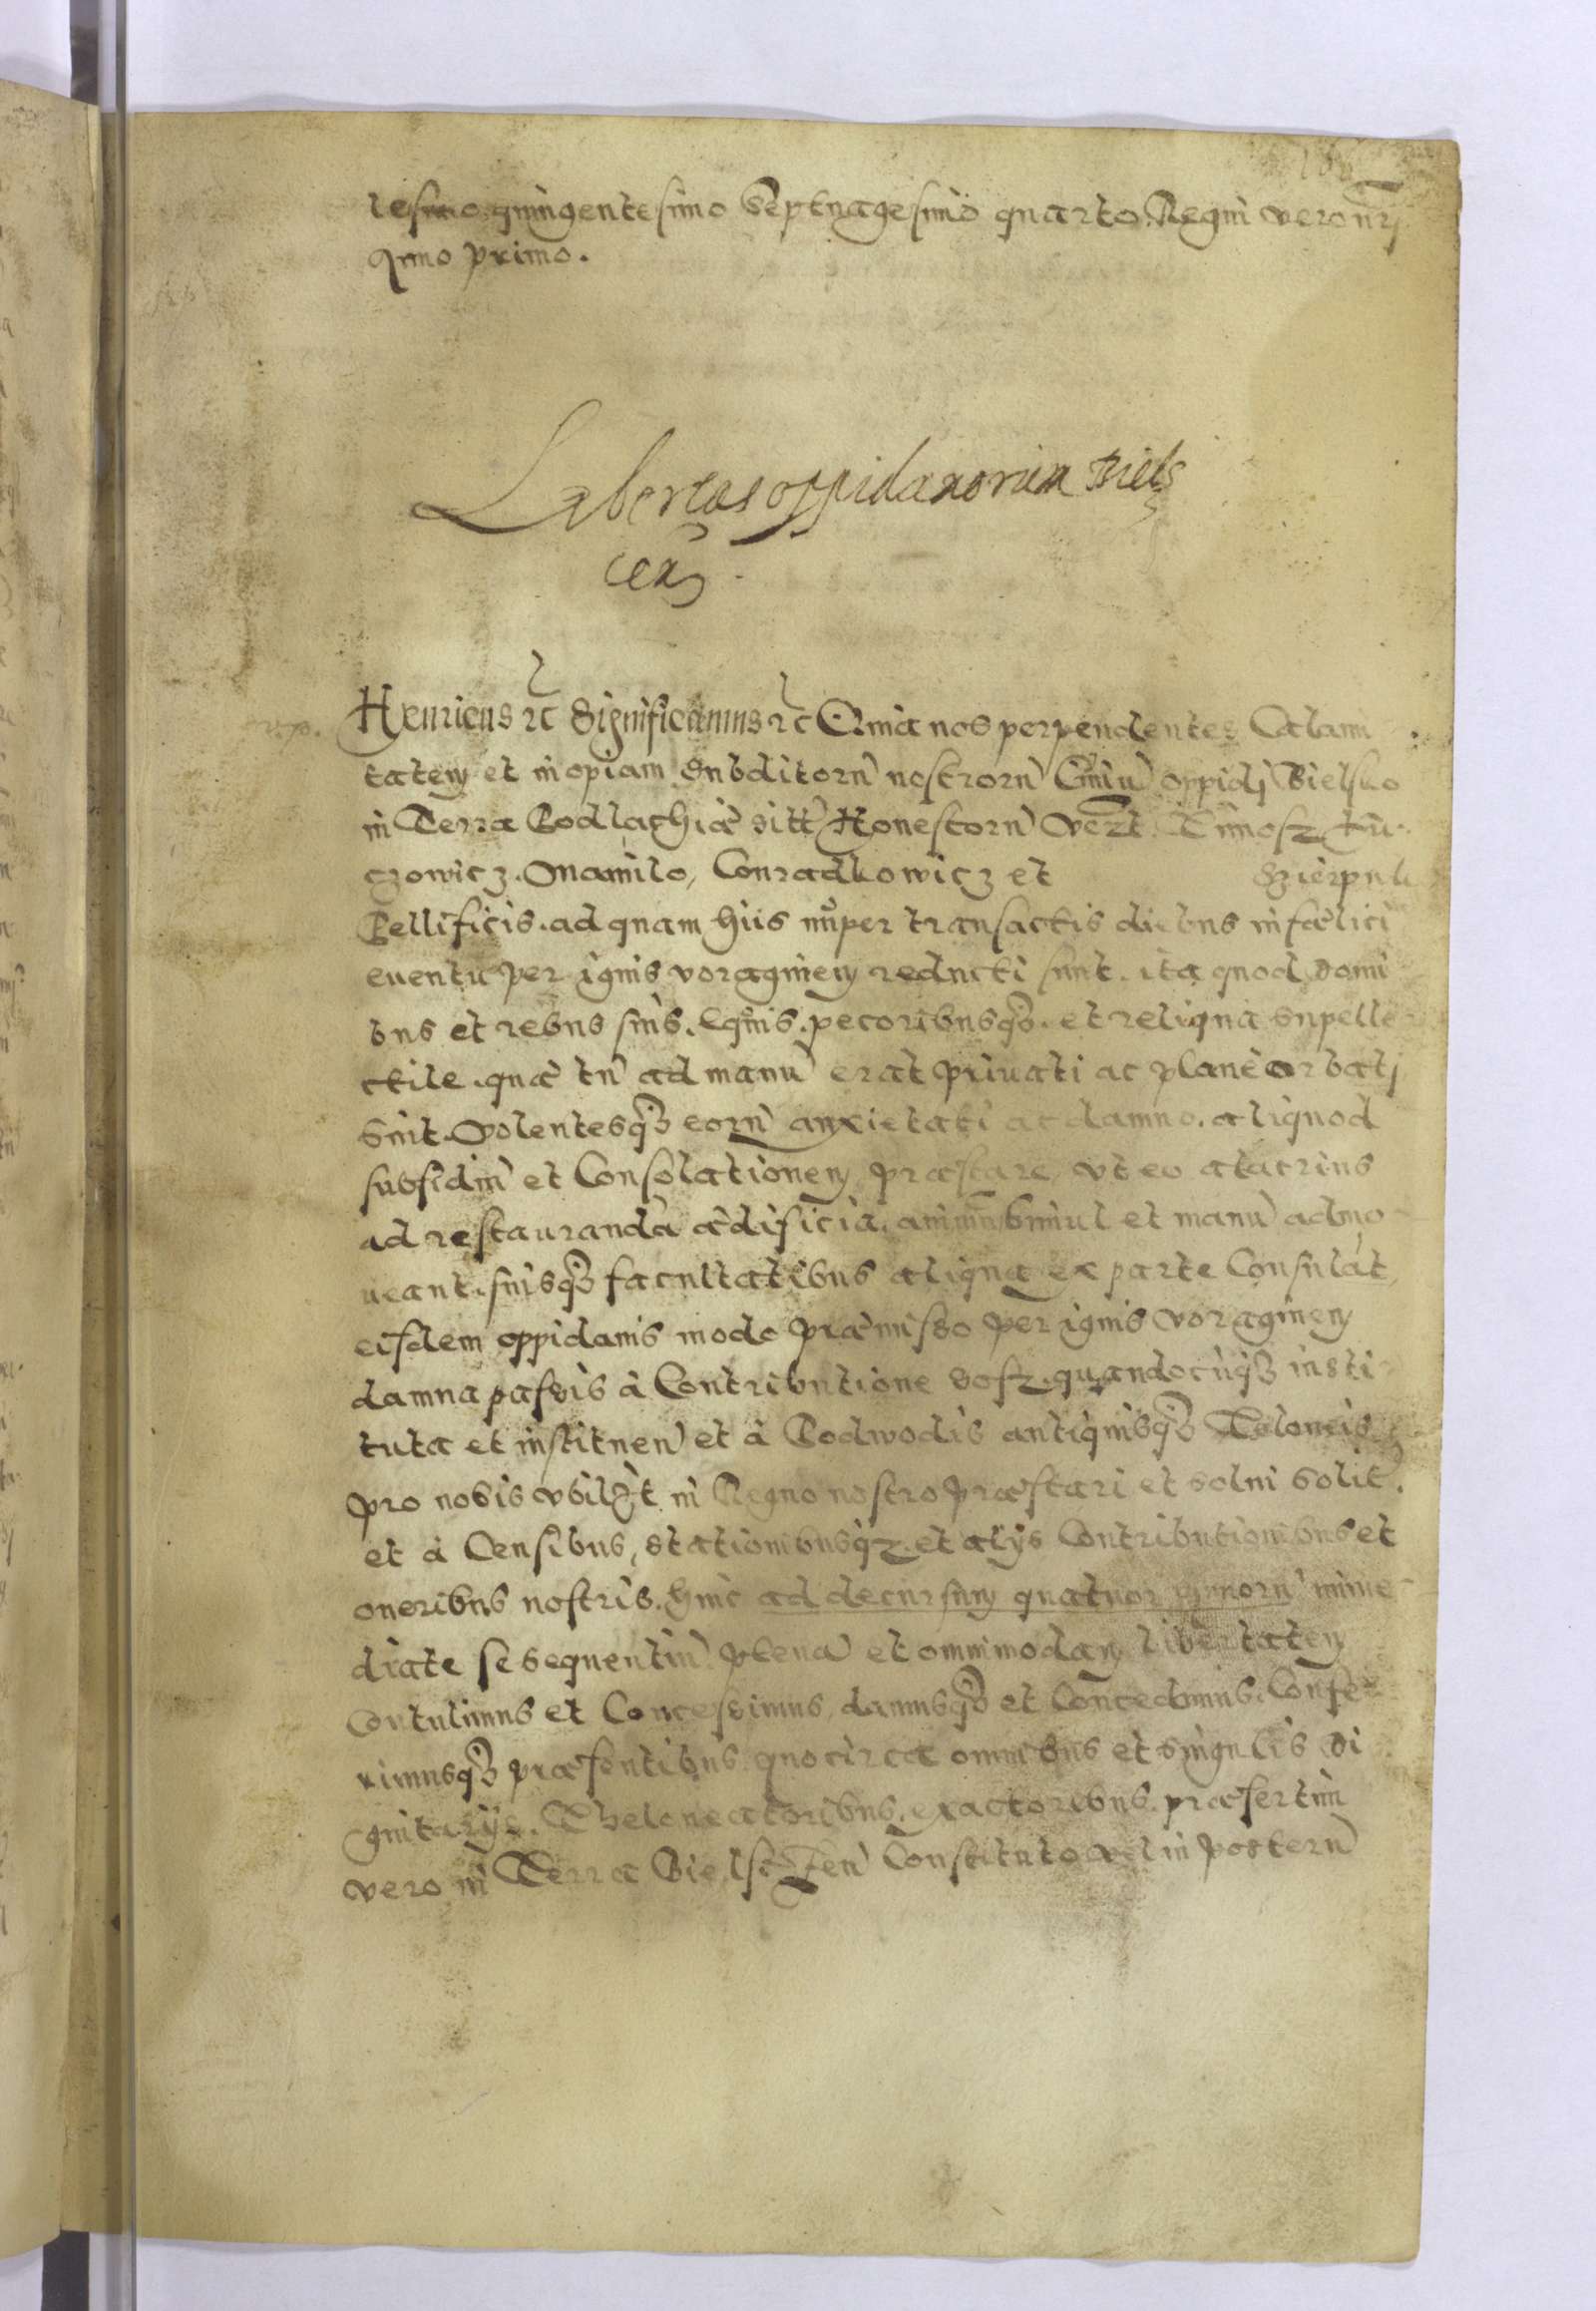 lesimo quingentesimo Septuagesimo quarto. Regni vero nrj
Anno primo.
Libertas oppidanorum Biels
cen
Henricus rc Significamus rc Quia nos perpendentes Calami
tatem et inopiam Subditorũ nostrorũ Ciuiũ oppidj Bielsko
in Terra Podlachiæ sitt Honestorũ Vezt. Timosz
czowicz. Manilo, Conradkowicz et
Pellificis. ad quam hijs nuper transactis diebus infælici
euentu per ignis voraginem reducti sunt. ita quod domi
bus et rebus suis. Equis. pecoribusqȝ. et reliqua supelle
ctile. quæ tũ ad manũ erat priuati ac planè orbatj
sint. Volentesqȝ eorũ anxietati ac damno. aliquod
subsidiũ et Consolationem præstare, vt eo alacrius
ad restauranda ædificia. animũ simul et manũ admo
ueant. suisqȝ facultatibus aliqua ex parte Consulãt
eisdem oppidanis modo præmisso per ignis voraginem
damna passis à Contributione sosz. quandocũqȝ insti
tuta et instituen̄ et à Podwodis antiquisqȝ Teloneis
pro nobis vbilɜt in Regno nostro præstari et solui solit.
et à Censibus, stationibusqȝ. et alijs Contributionibus et
oneribus nostris. hinc ad decursum quatuor annorũ imme
diate se sequentiũ plenã et omnimodam libertatem
Contulimus et Concessimus, damusqȝ et Concedimus. Confe
rimusqȝ præsentibus. quocirca omnibus et singulis di
gnitarijs. Theloneatoribus. exactoribus. præsertim
vero in Terra Bielscen̄ Constituto vel in posterũ